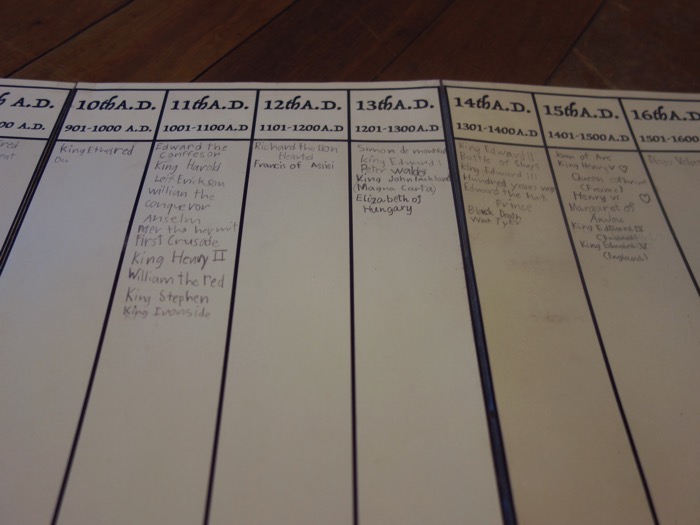 A.D.
00 A.D.
10thA.D.
901-1000 A.D.
King Ethelred
11thA.D.
1001-1100A.D
Edward the
Confresor
King Harold
Leif Erickson
William the
conqueror
Anselm
Peter the hermit
First Crusade
King Henry II
William the red
King Stephen
King Ironside
12thA.D.
1101-1200A.D
Richard the lion
Hearted
Francis of Assisi
13thA.D.
1201-1300A.D.
Simon de
King Edward I
Peter Waldo
King John
(Magna Carta)
Elizabeth of
Hungary
14thA.D.
1301-1400A.D
King Edward II
Battle of
King Edward III
Hundred years war
Edward the
Prince
Black Death
15thA.D.
1401-1500A.D.
Joan of Arc
King Henry V
Queen
(France)
Henry VI
Margaret of
Anjou
King Edward IV
(England)
King Edward V
(England)
16thA.D.
1501-1600